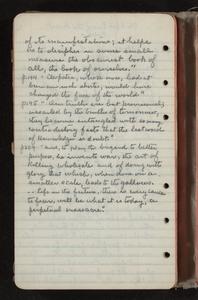 of its manifestations; it helps
us to decipher in some small
measure the obscurest book of
all, the book of ourselves."
"Cleopatra, whose nose, had it
been an inch shorter, would have
changed the face of the world"
"Our truths are but provisional;
assailed by the truths of tomorrow,
they become entangled with so many
contradictory facts that the last word
of knowledge is doubt."
"and, to play the brigand to better
purpose, he invents war, the art of
killing wholesale and of doing with
glory that which, when done on a
smaller scale, leads to the gallows.
-- life in the future, there is every cause
to fear, will be what it is today, a
perpetual massacre."